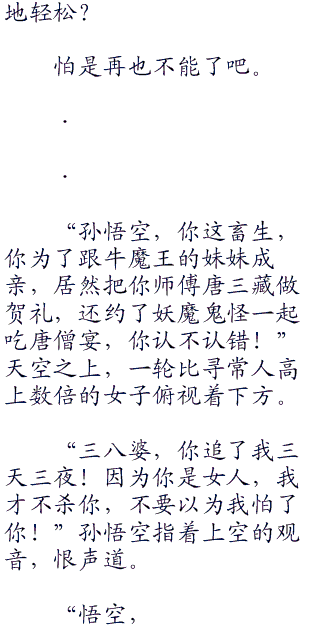 地轻松？
怕是再也不能了吧。
.
.
“孙悟空，你这畜生，
你为了跟牛魔王的妹妹成
亲，居然把你师傅唐三藏做
贺礼，还约了妖魔鬼怪一起
吃唐僧宴，你认不认错！”
天空之上，一轮比寻常人高
上数倍的女子俯视着下方。
“三八婆，你追了我三
天三夜！因为你是女人，我
才不杀你，不要以为我怕了
你！”孙悟空指着上空的观
音，恨声道。
“悟空，